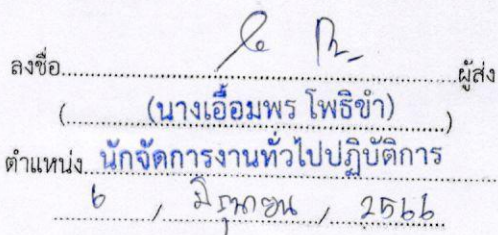 ลงชื่อ........................................ผู้ส่ง
(....(นางเอื้อมพร โพธิขำ)....)
ตำแหน่ง นักจัดการงานทั่วไปปฏิบัติการ
๖ / มิถุนายน / 2566